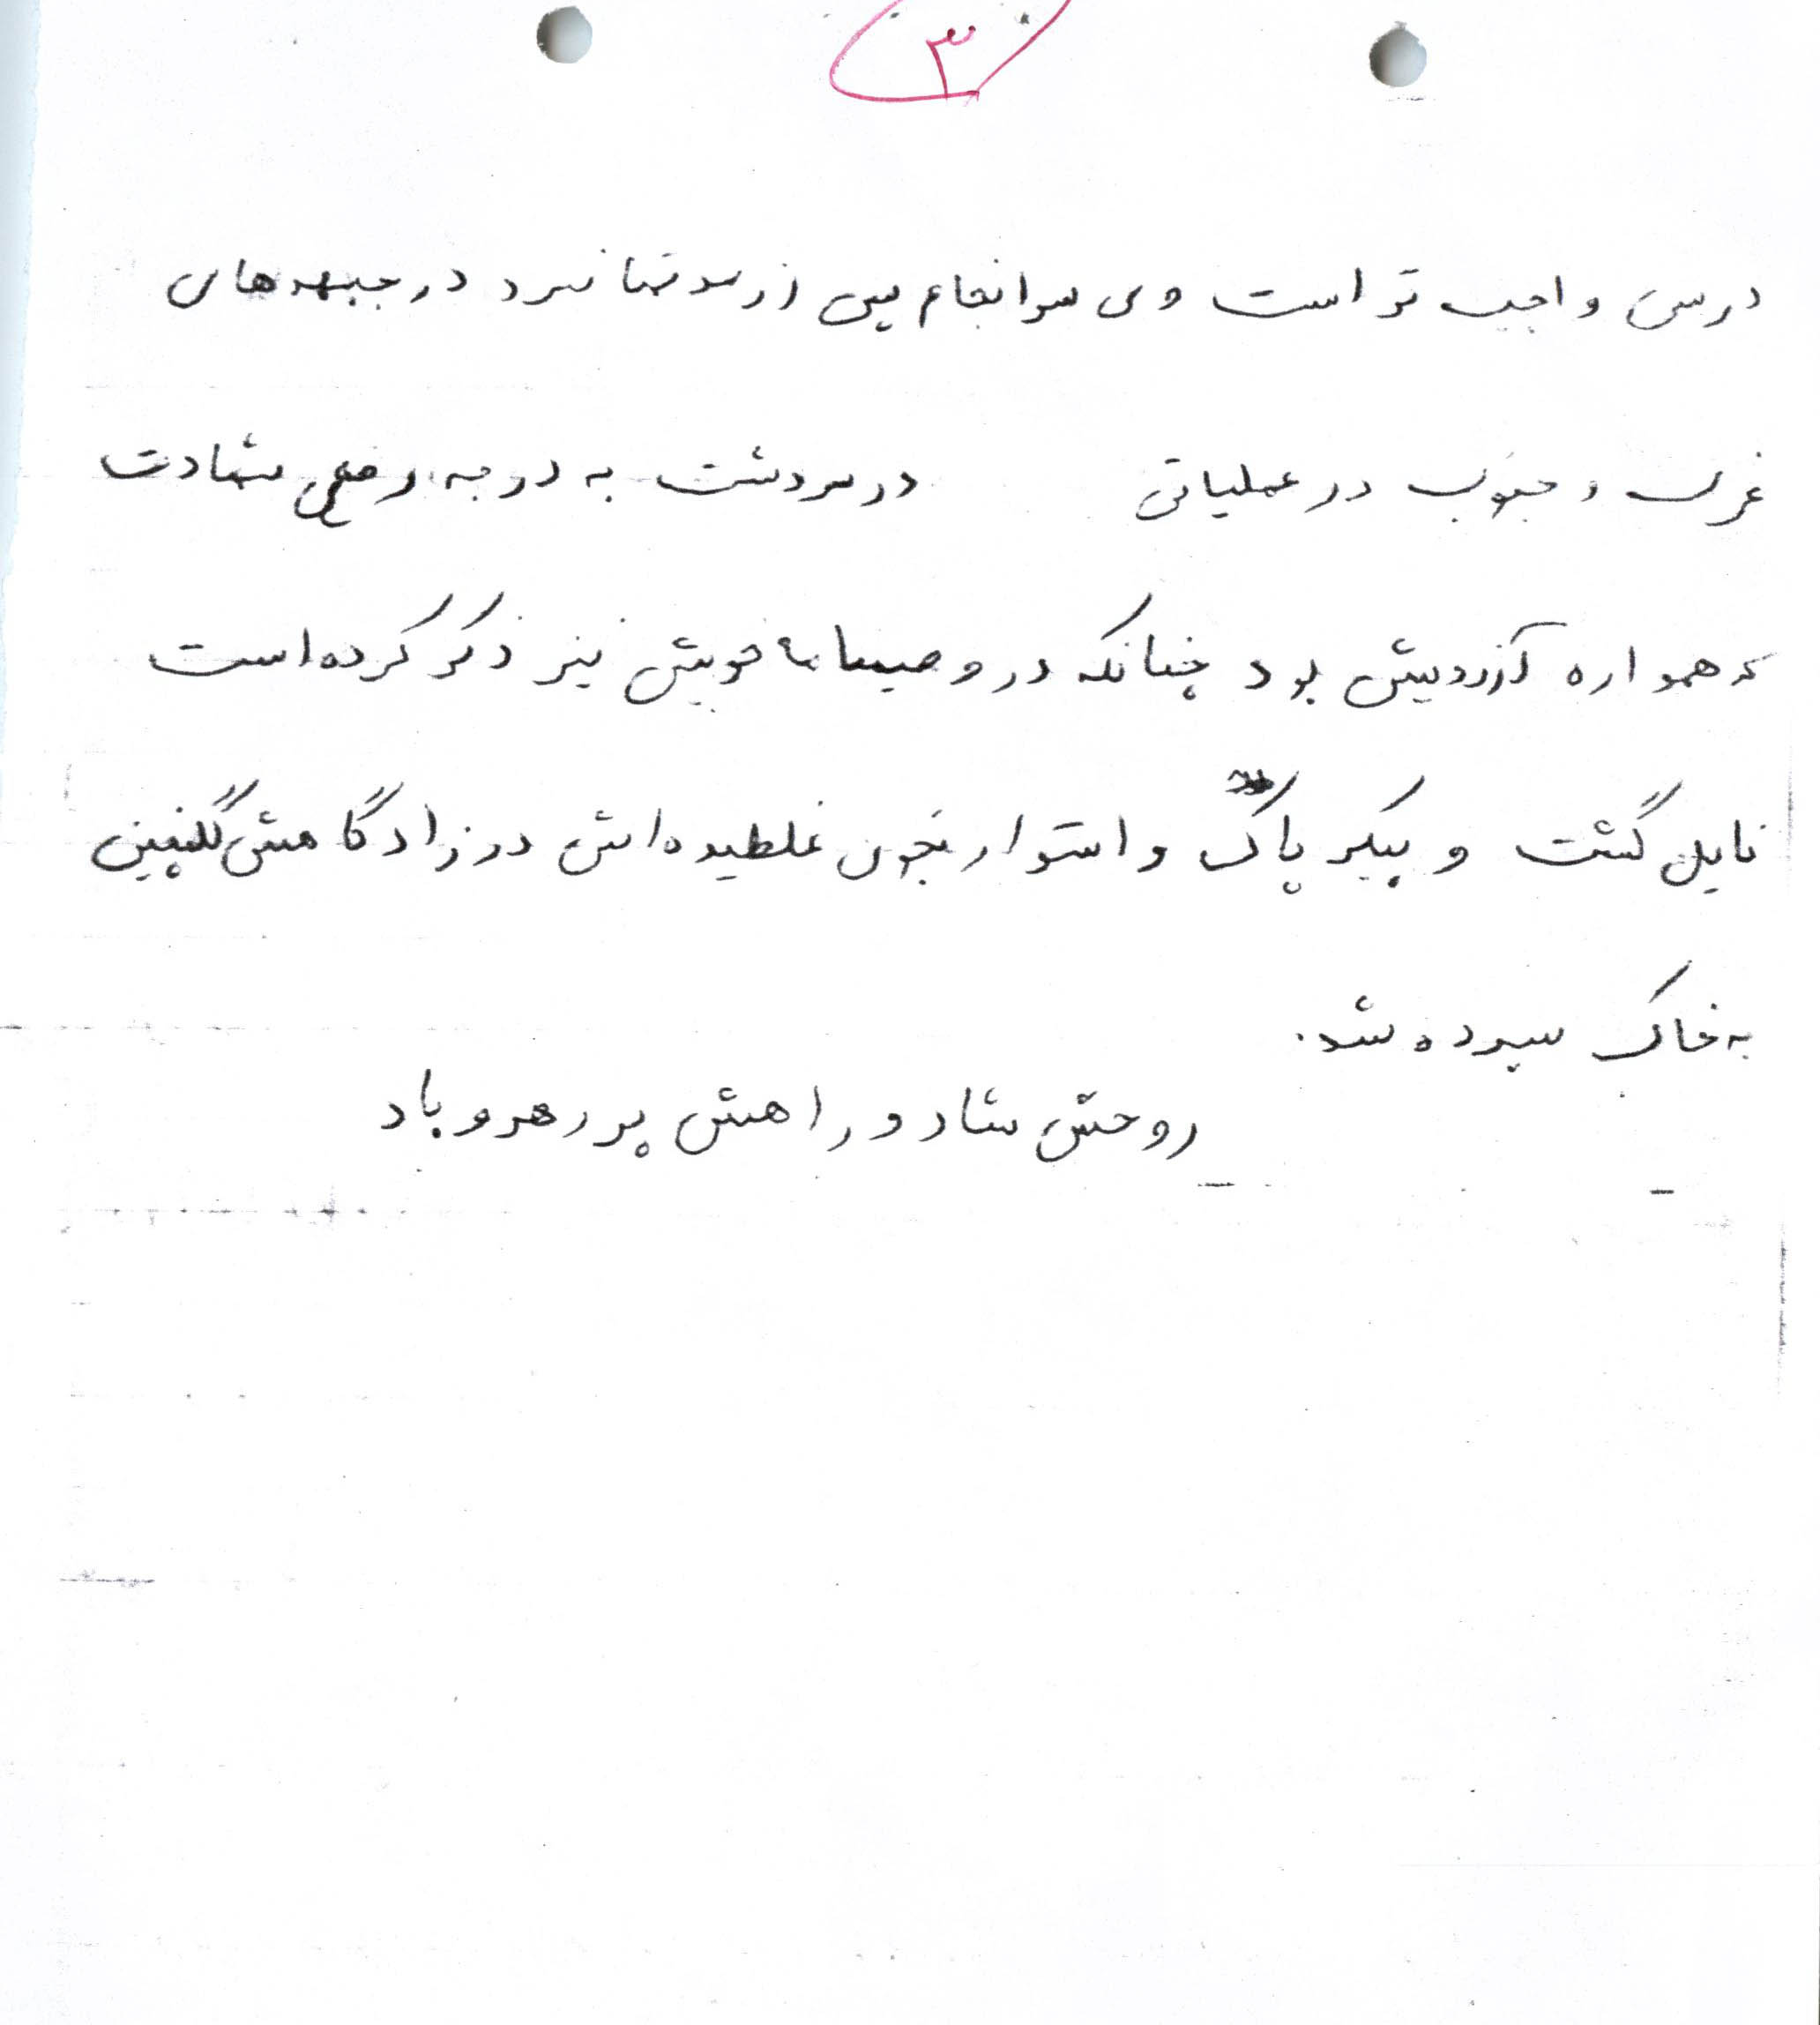 ۳
درس واجب تر است وی سرانجام پس از مدتها نبرد در جبهه های
غرب و جنوب در عملیاتی در سردشت به درجه رفیع شهادت
که همواره آرزویش بود چنانکه در وصیتنامه خویش نیز ذکر کرده است
نایل گشت و پیکر پاک و استوار بخون غلطیده اش در زادگاهش
به خاک سپرده شد.
روحش شاد و راهش پر رهرو باد